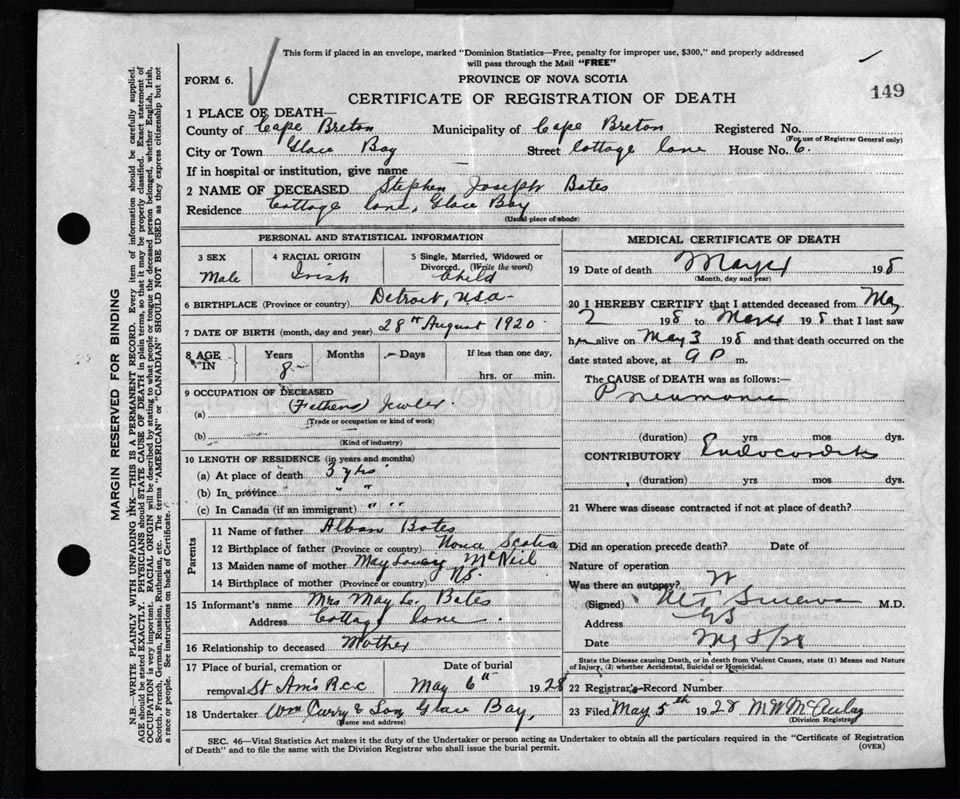 This form if placed in an envelope, marked "Dominion Statistics—Free, penalty for improper use, $300," and properly addressed
will pass through the Mail "FREE"
FORM 6.
PROVINCE OF NOVA SCOTIA
149
CERTIFICATE OF REGISTRATION OF DEATH
1 PLACE OF DEATH—
County of Cape Breton Municipality of Cape Breton Registered No.
(For use of Registrar General only)
City or Town Glace Bay Street Cottage Lane House No. 6.
If in hospital or institution, give name —
2 NAME OF DECEASED Stephen Joseph Bates
Residence Cottage Lane, Glace Bay
(Usual place of abode)
PERSONAL AND STATISTICAL INFORMATION
3 SEX
Male
4 RACIAL ORIGIN
Irish
5 Single, Married, Widowed or
Divorced. (Write the word)
Child
6 BIRTHPLACE (Province or country) Detroit, USA
7 DATE OF BIRTH (month, day and year) 28th August 1920
8 AGE IN
Years Months Days
8
If less than one day,
hrs. or min.
9 OCCUPATION OF DECEASED
(a) (Fathers) Jewler
(Trade or occupation or kind of work)
(b)
(Kind of industry)
10 LENGTH OF RESIDENCE (in years and months)
(a) At place of death 3 yrs
(b) In province " "
(c) In Canada (if an immigrant) " "
Parents
11 Name of father Alban Bates
12 Birthplace of father (Province or country) Nova Scotia
13 Maiden name of mother May McNeil
14 Birthplace of mother (Province or country) NS.
15 Informant's name Mrs May L. Bates
Address Cottage Lane.
16 Relationship to deceased Mother
17 Place of burial, cremation or
removal St Ann's R.C.C
Date of burial
May 6th 1928
18 Undertaker Wm Curry & Son Glace Bay,
(Name and address)
MEDICAL CERTIFICATE OF DEATH
19 Date of death 198
(Month, day and year)
20 I HEREBY CERTIFY that I attended deceased from May
2 198 to 198 that I last saw
him alive on May 3 198 and that death occurred on the
date stated above, at 9 P m.
The CAUSE OF DEATH was as follows:—
Pneumonia
(duration) yrs mos dys.
CONTRIBUTORY Endocarditis
(duration) yrs mos dys.
21 Where was disease contracted if not at place of death?
Did an operation precede death? Date of
Nature of operation
Was there an autopsy? N
(Signed) M.D.
Address GB
Date My 5/28
State the Disease causing Death, or in death from Violent Causes, state (1) Means and Nature
of Injury, (2) whether Accidental, Suicidal or Homicidal.
22 Registrar's Record Number
23 Filed May 5th 1928 M.W. McAulay
(Division Registrar)
SEC. 46—Vital Statistics Act makes it the duty of the Undertaker or person acting as Undertaker to obtain all the particulars required in the "Certificate of Registration
of Death" and to file the same with the Division Registrar who shall issue the burial permit.
(OVER)
MARGIN RESERVED FOR BINDING
N.B.—WRITE PLAINLY WITH UNFADING INK—THIS IS A PERMANENT RECORD. Every item of information should be carefully supplied.
AGE should be stated EXACTLY. PHYSICIANS should STATE CAUSE OF DEATH in plain terms, so that it may be properly classified. Exact statement of
OCCUPATION is very important. RACIAL ORIGIN will be described by stating to what people or tongue the deceased person belonged, whether English, Irish,
Scotch, French, German, Russian, Ruthenian, etc. The terms "AMERICAN" or "CANADIAN" SHOULD NOT BE USED as they express citizenship but not
a race or people. See instructions on back of Certificate.